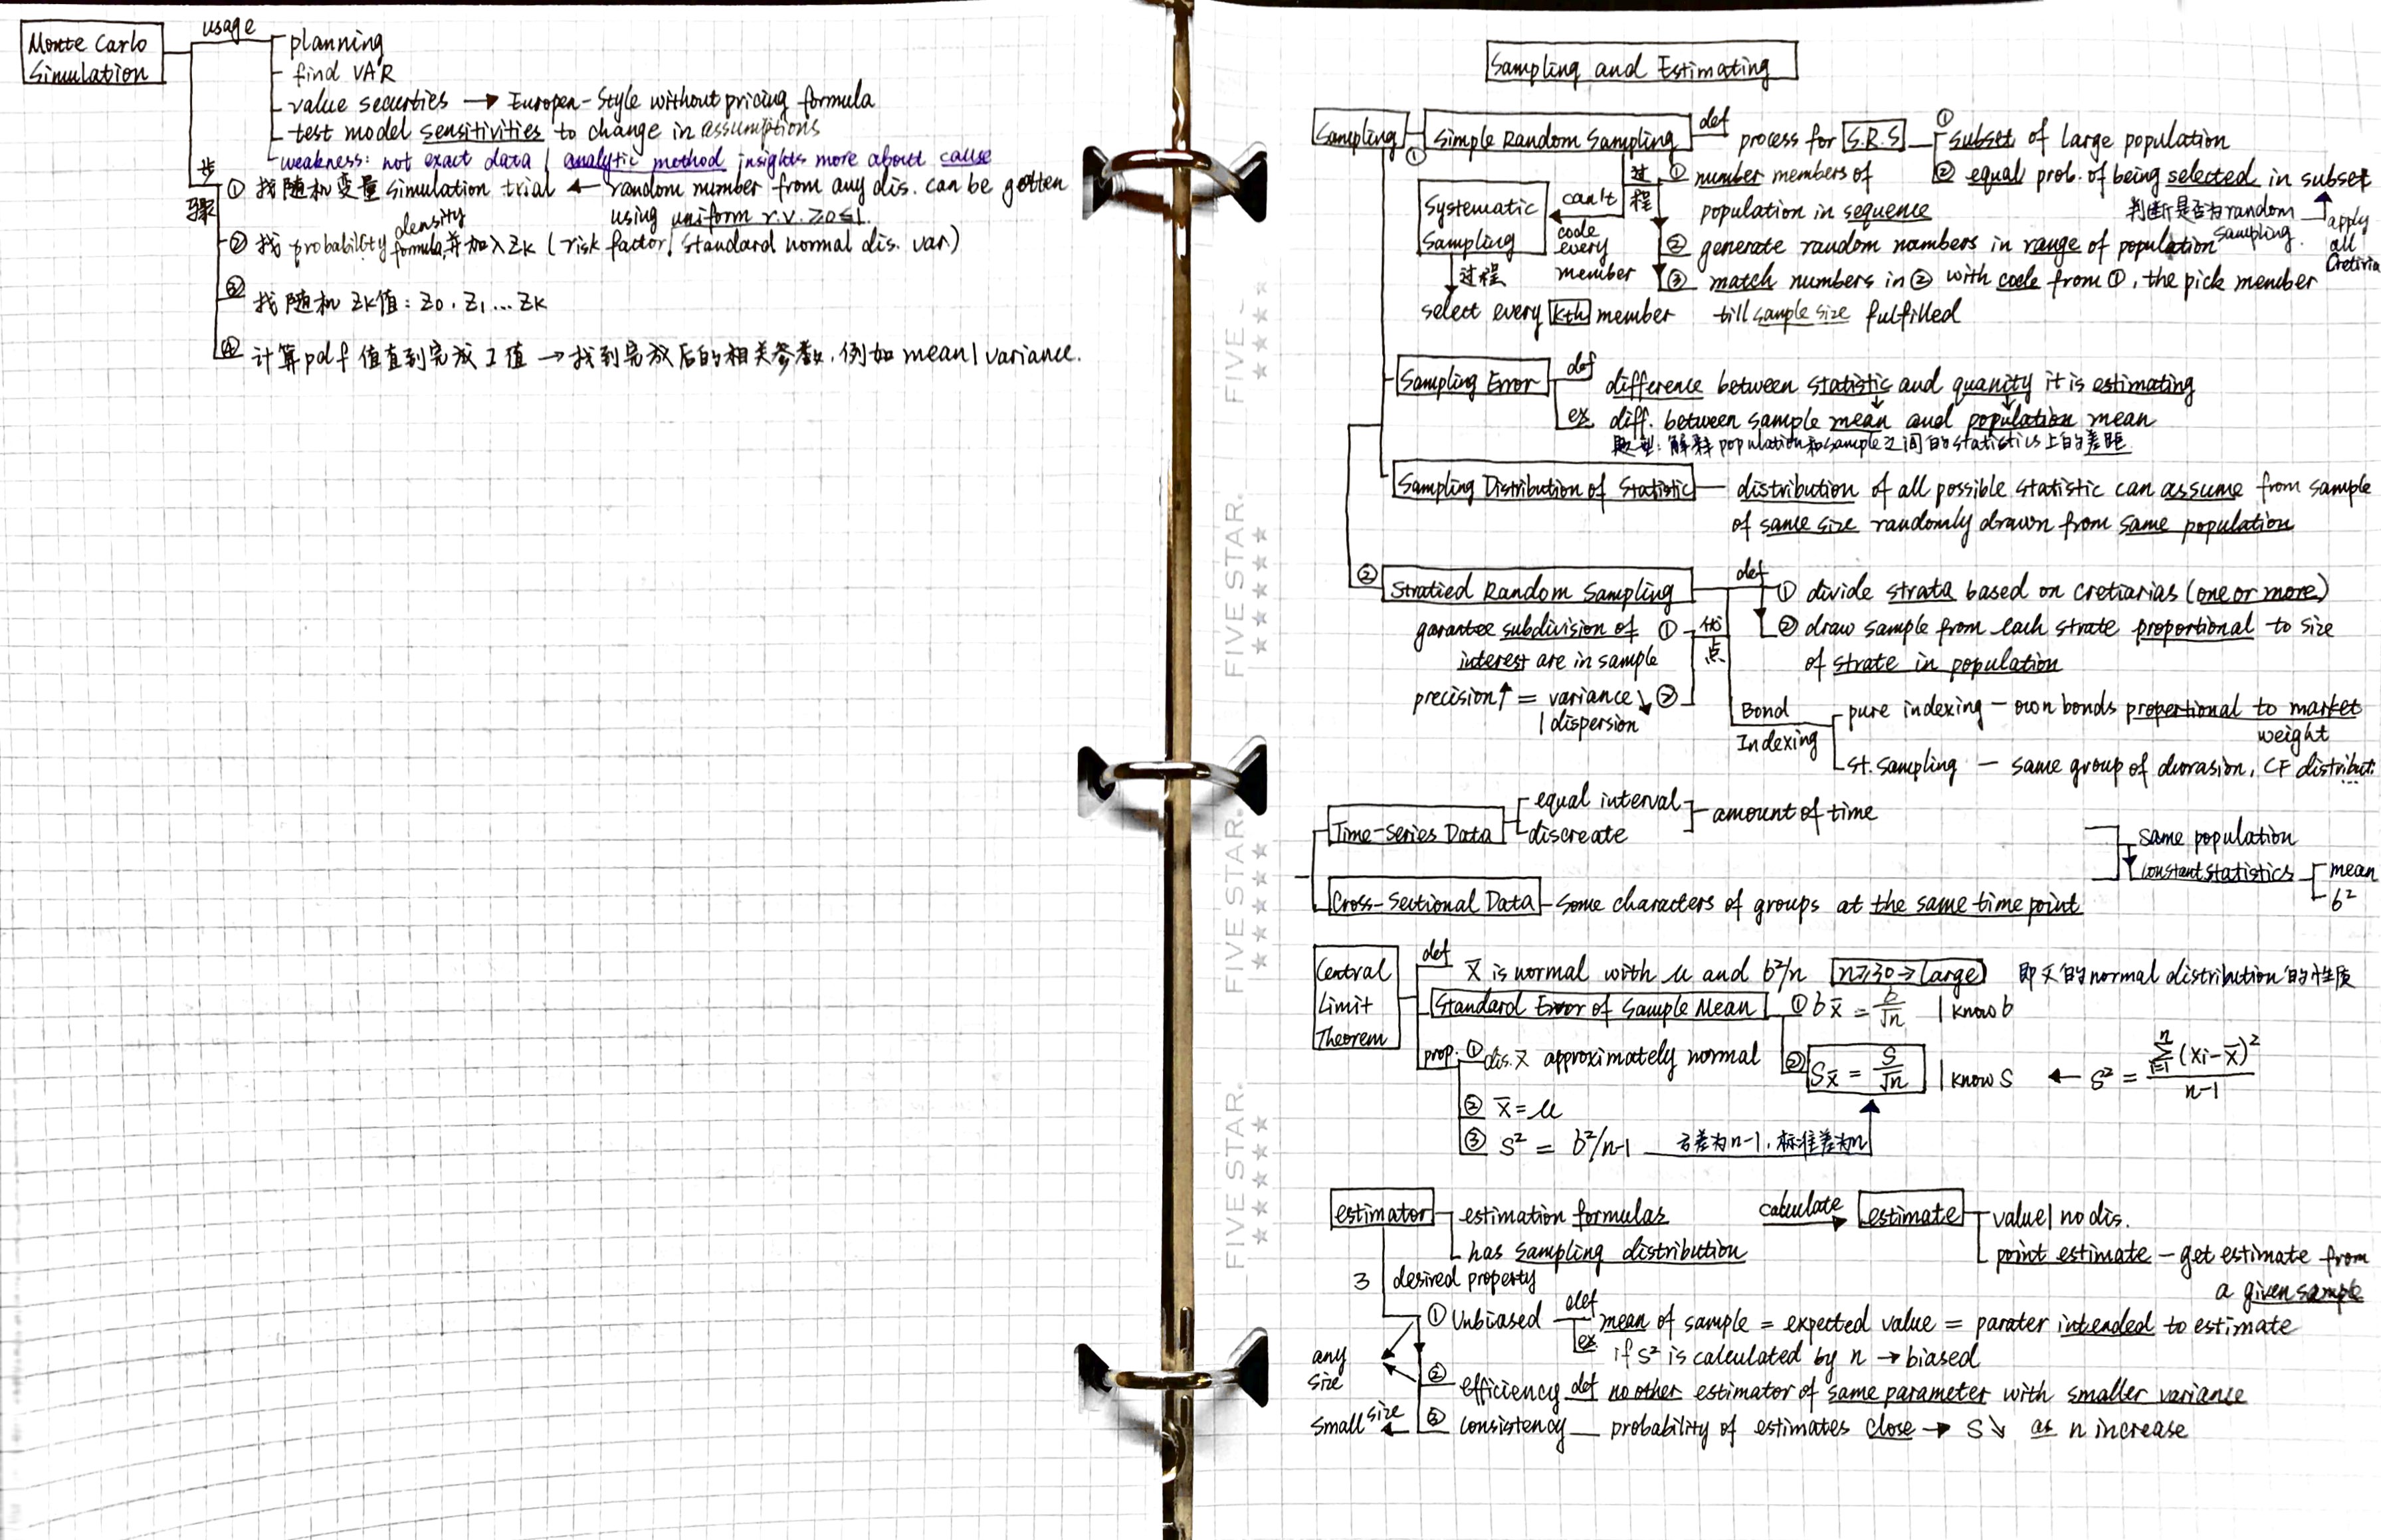 Monte Carlo
Simulation
usage
planning
find VAR
value securties → Europen-Style without pricing formula
test model sensitivities to change in assumptions
weakness: not exact data / analytic method insights more about cause
步骤
① 找随机变量 simulation trial ← random number from any dis. can be gotten
using uniform r.v. ≥0≤1.
② 找 probability density formula, 并加入 Zk (risk factor / standard normal dis. var)
③ 找随机 Zk值: Z0, Z1 ... Zk
④ 计算pdf 值直到完成 I 值 → 找到完成后的相关参数, 例如 mean / variance.
Sampling and Estimating
Sampling
① Simple Random Sampling
def
process for S.R.S
① subset of large population
② equal prob. of being selected in subset
判断是否为random sampling.
apply all Cretivia
过程
① number members of
population in sequence
② generate random numbers in range of population
③ match numbers in ② with code from ①, the pick member
till sample size fulfilled
can't code every member
Systematic
Sampling
过程
select every kth member
Sampling Error
def
difference between statistic and quanity it is estimating
ex
diff. between sample mean and population mean
题型: 解释 population和sample之间的statistics上的差距
Sampling Distribution of Statistic
distribution of all possible statistic can assume from sample
of same size randomly drawn from same population
② Stratied Random Sampling
def
① divide strata based on cretiarias (one or more)
② draw sample from each strate proportional to size
of strate in population
优点
garantee subdivision of ①
interest are in sample
precision↑ = variance↘ ②
/ dispersion
Bond
Indexing
pure indexing — own bonds propertional to market
weight
st. sampling — same group of durasion, CF distribut...
Time-Series Data
equal interval
discreate
amount of time
same population
constant statistics
mean
б²
Cross-Sectional Data
some characters of groups at the same time point
Central
Limit
Theorem
def
x̄ is normal with μ and б²/n n≥30→large 即x̄的normal distribution的性质
Standard Error of Sample Mean
① бx̄ = б/√n | know б
② Sx̄ = S/√n | know S ← S² = Σ(i=1→n)(xi-x̄)²/(n-1)
prop.
① dis. x̄ approximately normal
② x̄ = μ
③ S² = б²/n-1 方差为n-1, 标准差为n
estimator
estimation formulas
has sampling distribution
calculate
estimate
value / no dis.
point estimate — get estimate from
a given sample
3 desired property
① Unbiased
def
mean of sample = expected value = parater intended to estimate
ex
if S² is calculated by n → biased
any
size
② efficiency def no other estimator of same parameter with smaller variance
small size
③ consistency — probability of estimates close → S↘ as n increase
FIVE STAR.
FIVE STAR.
FIVE STAR.
FIVE STAR.